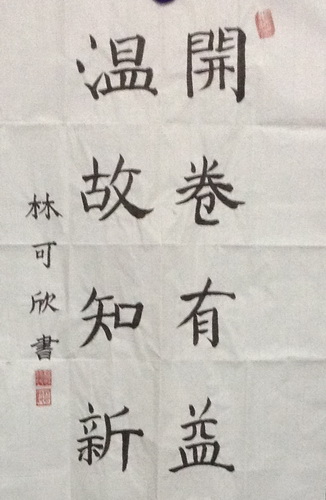 開卷有益
温故知新
林可欣書